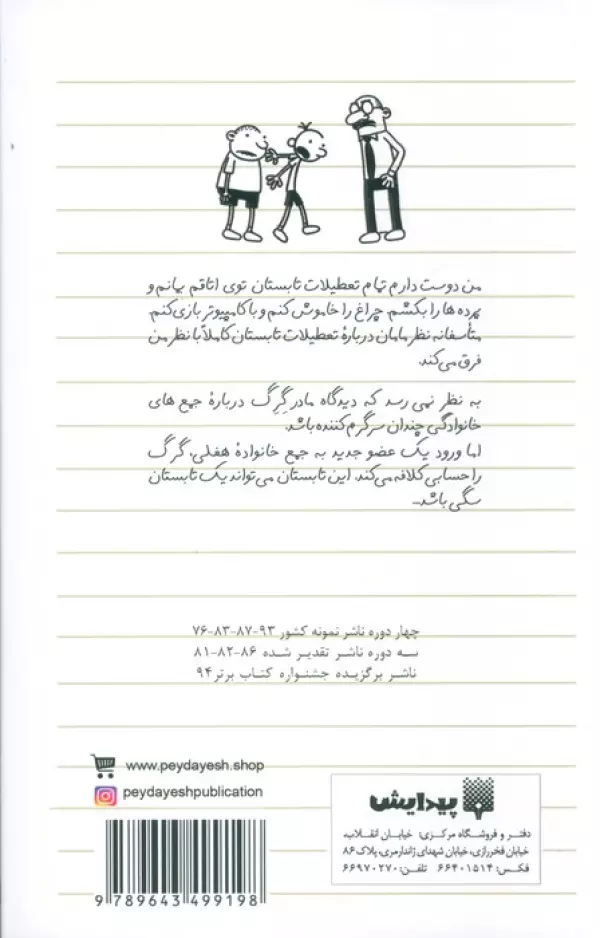 من دوست دارم تمام تعطیلات تابستان توی اتاقم بمانم و
پرده‌ها را بکشم، چراغ را خاموش کنم و با کامپیوتر بازی کنم.
متأسفانه نظر مامان دربارهٔ تعطیلات تابستان کاملاً با نظر من
فرق می‌کند.
به نظر نمی رسد که دیدگاه مادر گرِگ دربارهٔ جمع های
خانوادگی چندان سرگرم کننده باشد.
اما ورود یک عضو جدید به جمع خانوادهٔ هفلی، گرگ
را حسابی کلافه می‌کند. این تابستان می‌تواند یک تابستان
سگی باشد...
چهار دوره ناشر نمونه کشور ۹۳-۸۷-۸۳-۷۶
سه دوره ناشر تقدیر شده ۸۶-۸۲-۸۱
ناشر برگزیده جشنواره کتاب برتر ۹۴
www.peydayesh.shop
peydayeshpublication
پیدایش
دفتر و فروشگاه مرکزی: خیابان انقلاب،
خیابان فخررازی، خیابان شهدای ژاندارمری، پلاک ۸۶
فکس: ۶۶۴۰۱۵۱۴ تلفن: ۶۶۹۷۰۲۷۰
9 789643 499198